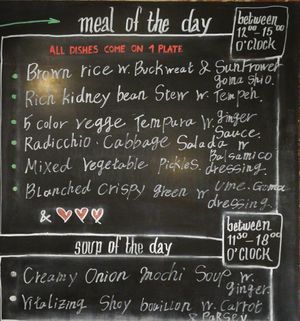 meal of the day
between
12⁰⁰ 15⁰⁰
o'clock
ALL DISHES COME ON 1 PLATE
Brown rice w. Buckweat & Sunflower
goma shio.
Rich kidney bean Stew w. Tempeh.
5 color vegge Tempura w. ginger
Sauce.
Radicchio Cabbage Salada w
Balsamico
Mixed Vegetable Pickles. dressing
Blanched Crispy green w Ume. Goma
dressing.
&
between
11³⁰-18⁰⁰
O'CLOCK
soup of the day
Creamy Onion Mochi Soup w.
ginger.
Vitalizing Shoy bouillon w. Carrot
& Parsey